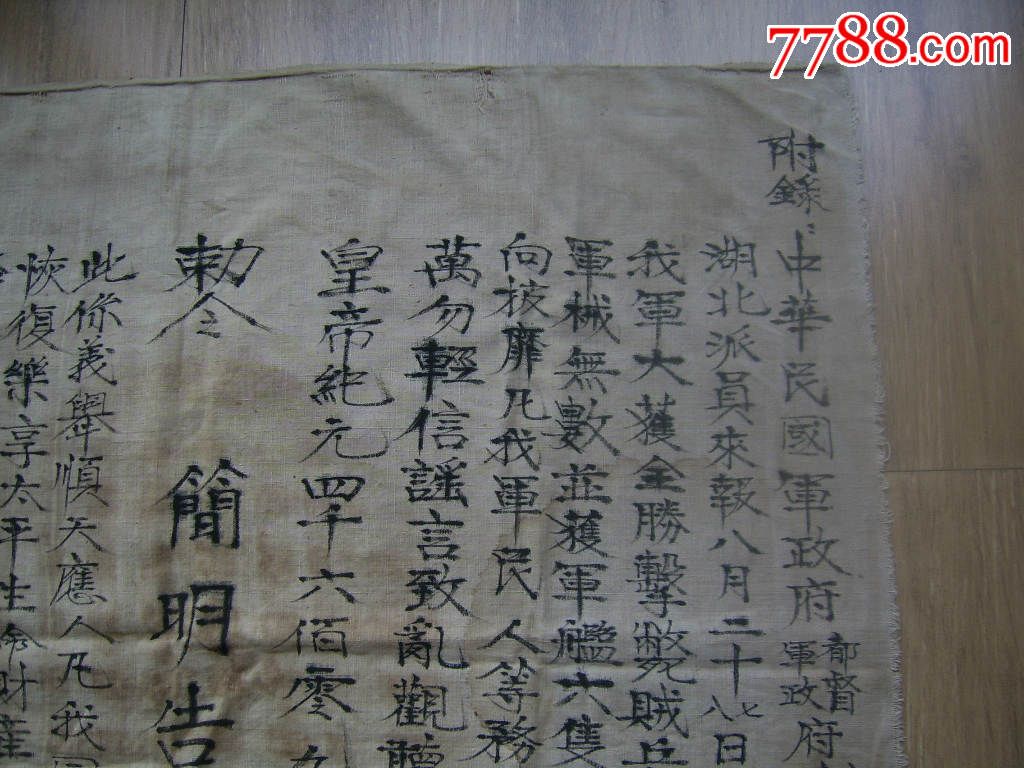 7788.com
附錄：中華民國軍政府都督軍政府
湖北派員來報八月二十七八日
我軍大獲全勝擊斃賊兵
軍械無數並獲軍艦六隻
向披靡凡我軍民人等務
萬勿輕信謠言致亂觀聽
皇帝紀元四千六佰零九
勅令 簡明告
此係義舉順天應人凡我國
恢復樂享太平生命財產